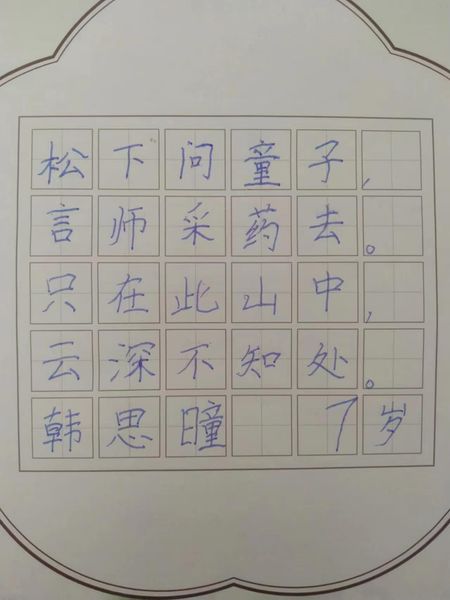 松下问童子,
言师采药去。
只在此山中,
云深不知处。
韩思曈 7岁